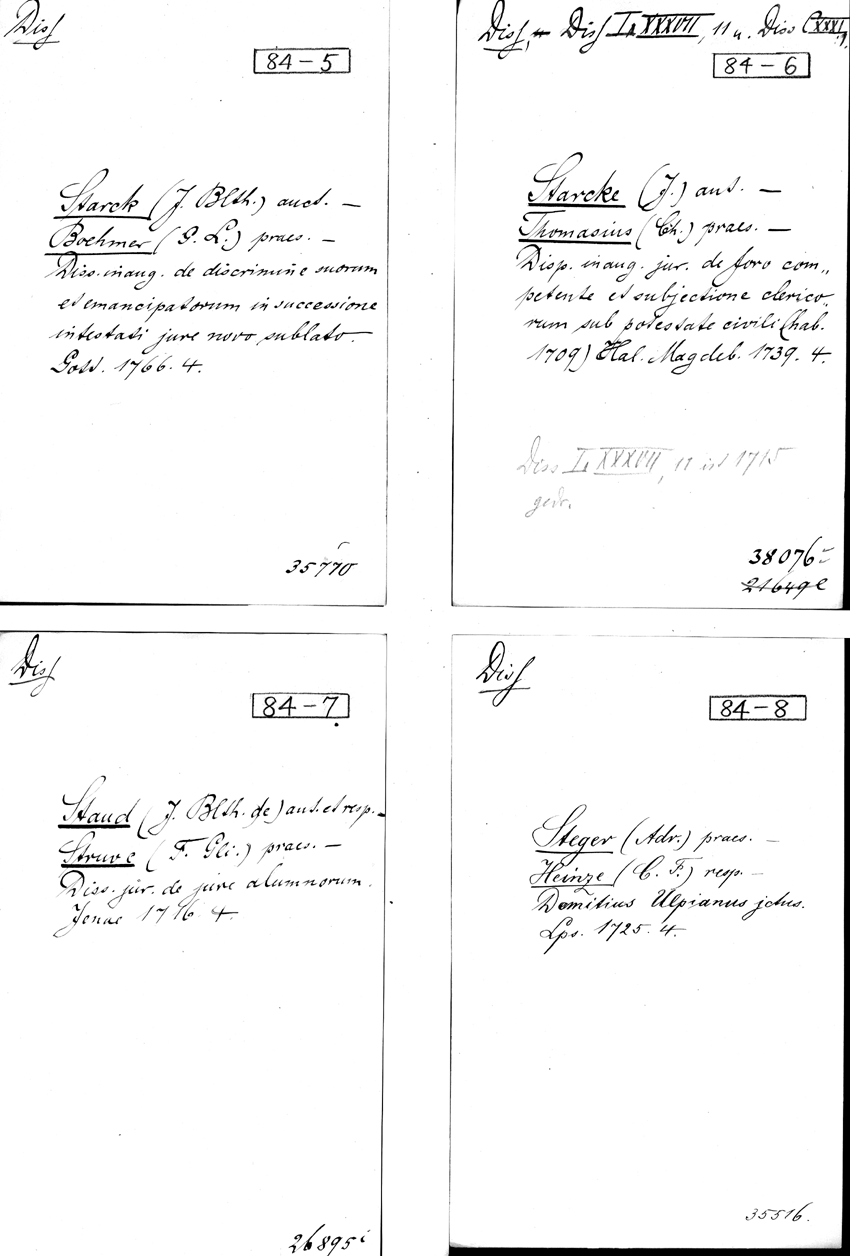 Diss
84-5
Starck (J. Blth.) auct. —
Boehmer (G. L.) praes. —
Diss. inaug. de discrimine suorum
et emancipatorum in successione
intestati jure novo sublato.
Gott. 1766. 4.
35770
Diss, Diss L XXXVII, 11 u. Diss CXXXI, 9.
84-6
Starcke (J.) aut. —
Thomasius (Ch.) praes. —
Disp. inaug. jur. de foro com„
petente et subjectione clerico„
rum sub potestate civili (hab.
1709) Hal. Magdeb. 1739. 4.
Diss L XXXVII, 11 ist 1715
gedr.
38076
21649 e
Diss
84-7
Staud (J. Blth. de) aut. et resp. —
Struve (F. Gli.) praes. —
Diss. jur. de jure alumnorum.
Jenae 1716. 4.
26895 i
Diss
84-8
Steger (Adr.) praes. —
Heinze (C. F.) resp. —
Domitius Ulpianus jctus.
Lps. 1725. 4.
35516.